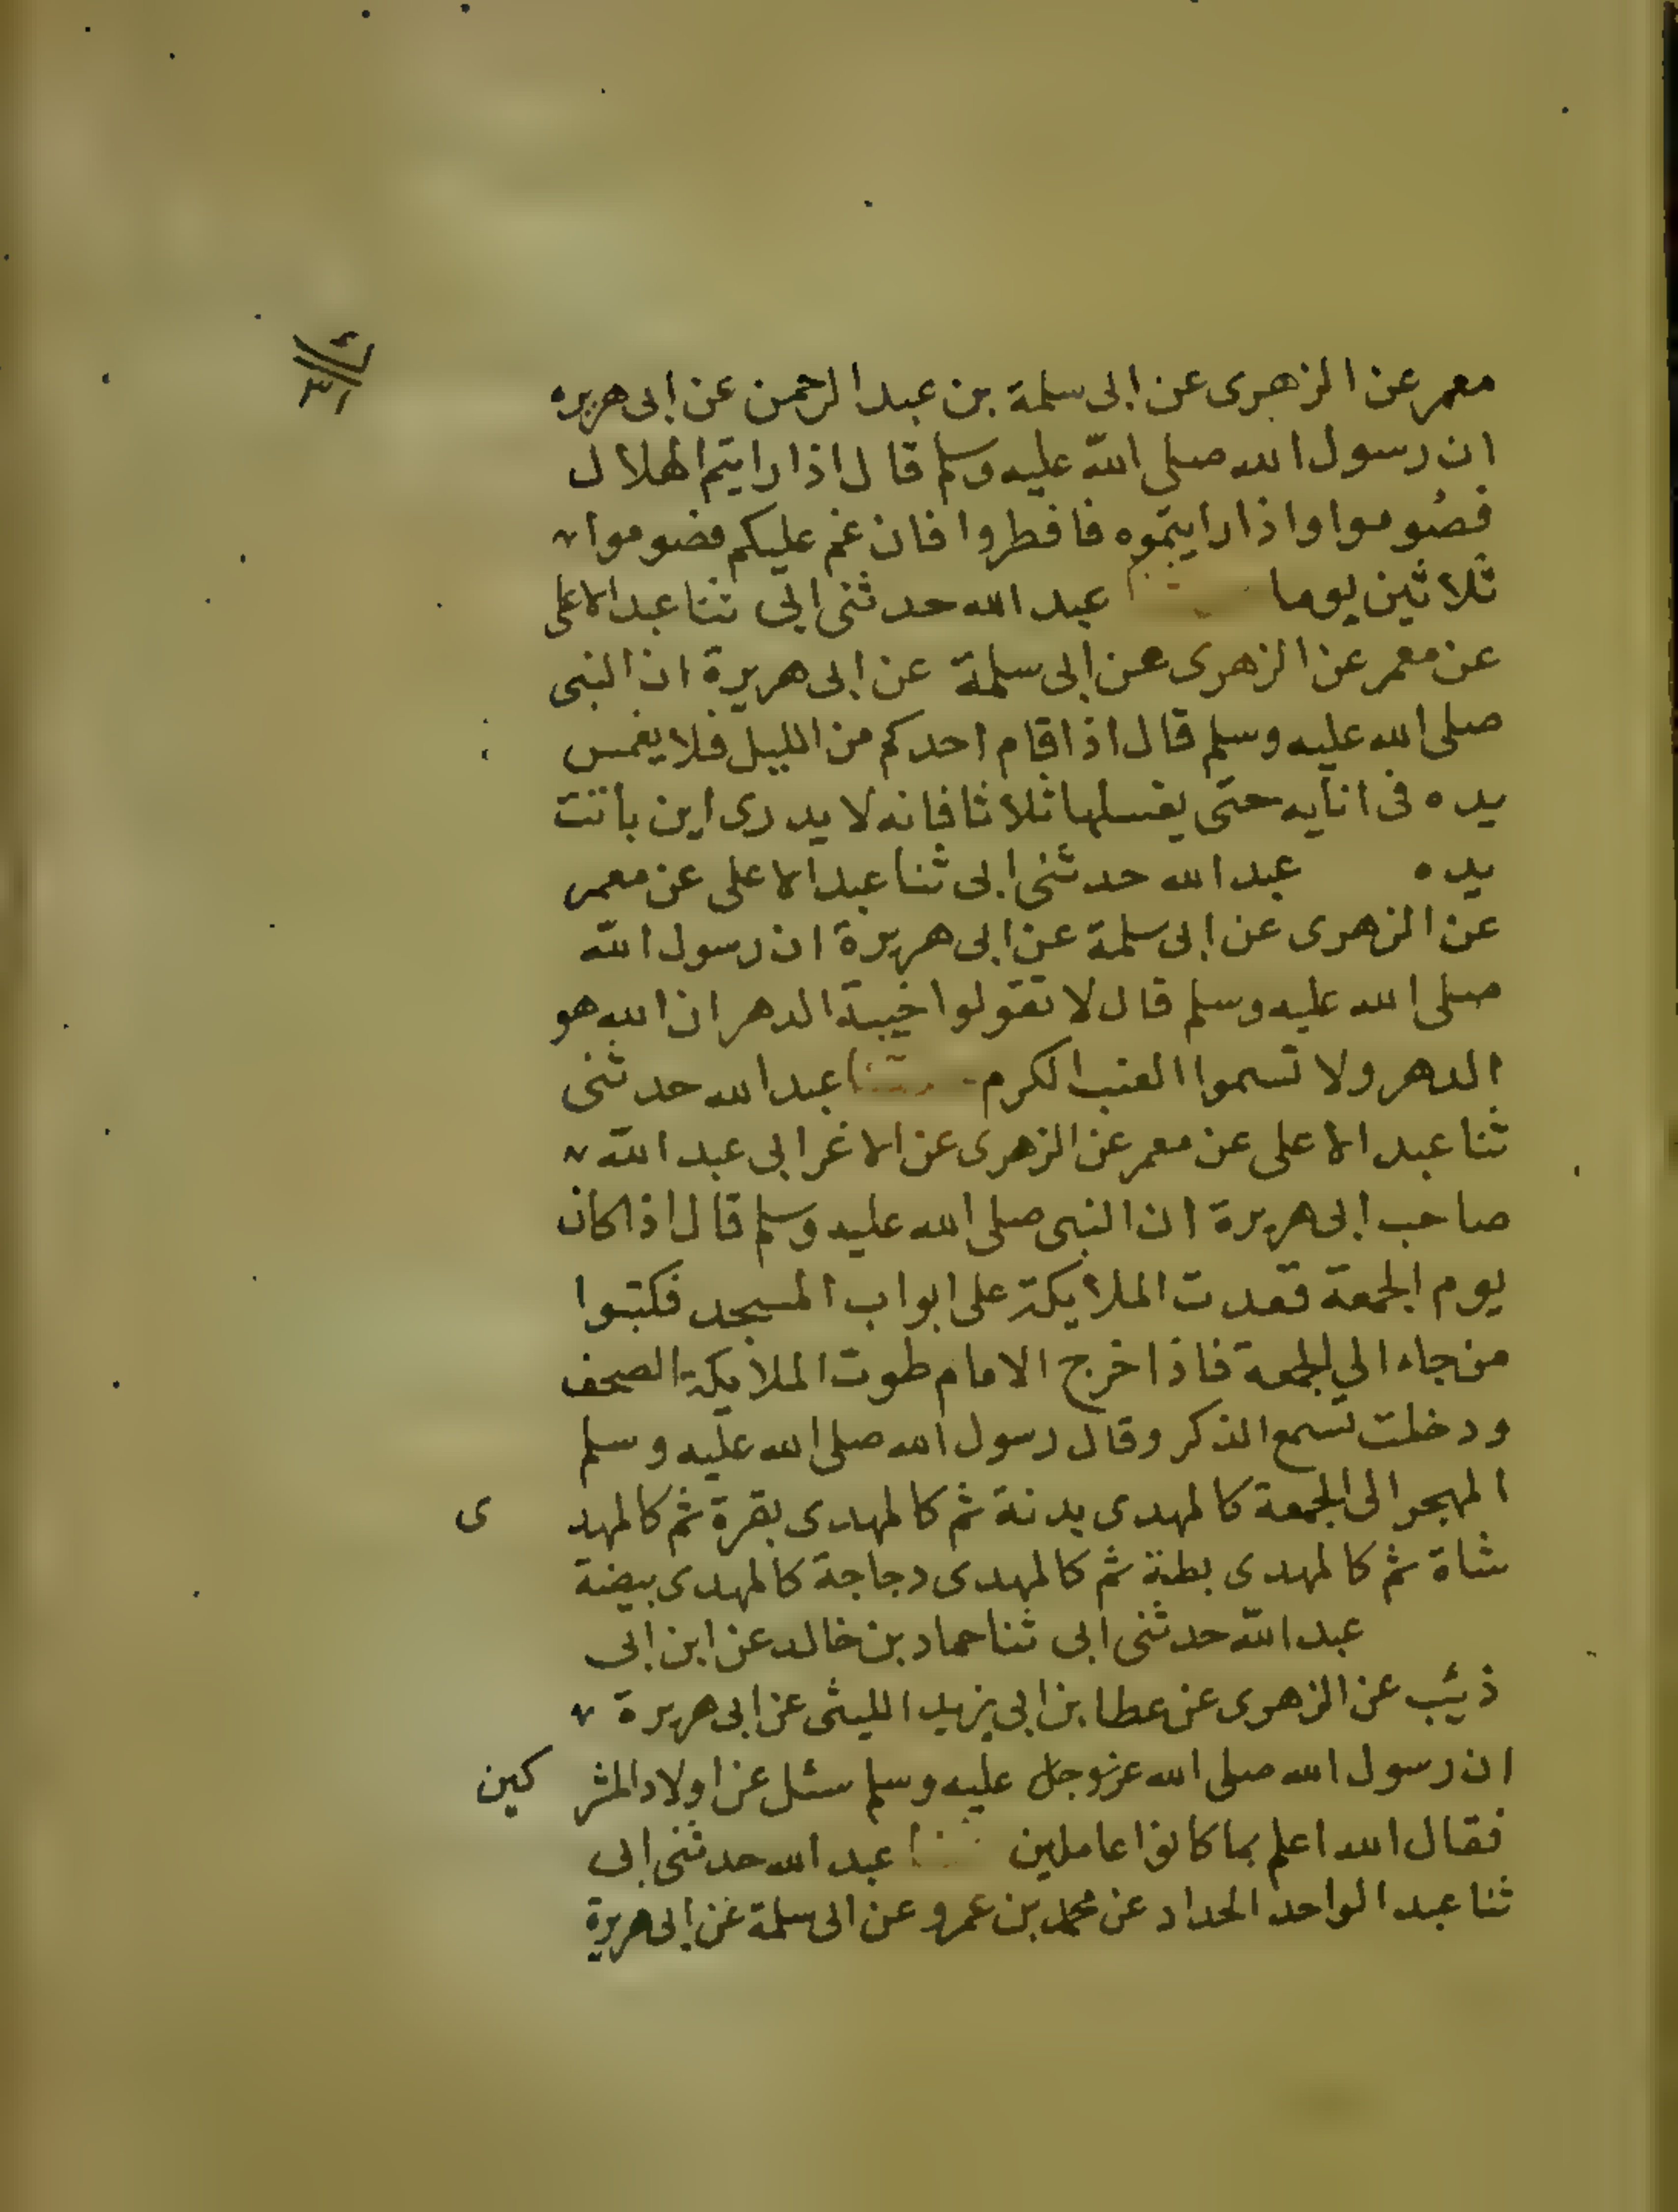 معمر عن الزهرى عن ابى سلمة بن عبد الرحمن عن ابى هريره
ان رسول الله صلى الله عليه وسلم قال اذا رايتم الهلال
فصوموا واذا رايتموه فافطروا فان غم عليكم فصوموا
ثلاثين يوما عبد الله حدثنى ابى ثنا عبد الاعلى
عن معمر عن الزهرى عن ابى سلمة عن ابى هريرة ان النبى
صلى الله عليه وسلم قال اذا قام احدكم من الليل فلا يغمس
يده فى انايه حتى يغسلها ثلاثا فانه لا يدرى اين باتت
يده عبد الله حدثنى ابى ثنا عبد الاعلى عن معمر
عن الزهرى عن ابى سلمة عن ابى هريرة ان رسول الله
صلى الله عليه وسلم قال لا تقولوا خيبة الدهر ان الله هو
الدهر ولا تسموا العنب الكرم عبد الله حدثنى
ثنا عبد الاعلى عن معمر عن الزهرى عن الاغر ابى عبد الله
صاحب ابى هريرة ان النبى صلى الله عليه وسلم قال اذا كان
يوم الجمعة قعدت الملايكة على ابواب المسجد فكتبوا
من جاء الي الجمعة فاذا خرج الامام طوت الملايكة الصحف
ودخلت تسمع الذكر وقال رسول الله صلى الله عليه وسلم
المهجر الى الجمعة كالمهدى بدنة ثم كالمهدى بقرة ثم كالمهد ى
شاة ثم كالمهدى بطة ثم كالمهدى دجاجة كالمهدى بيضة
عبد الله حدثنى ابى ثنا حماد بن خالد عن ابن ابى
ذئيب عن الزهرى عن عطا بن ابي يزيد الليثى عن ابى هريرة
ان رسول الله صلى الله عزوجل عليه وسلم سئل عن اولاد المشر كين
فقال الله اعلم بما كانوا عاملين عبد الله حدثنى ابى
ثنا عبد الواحد الحداد عن محمد بن عمرو عن ابى سلمة عن ابى هريرة